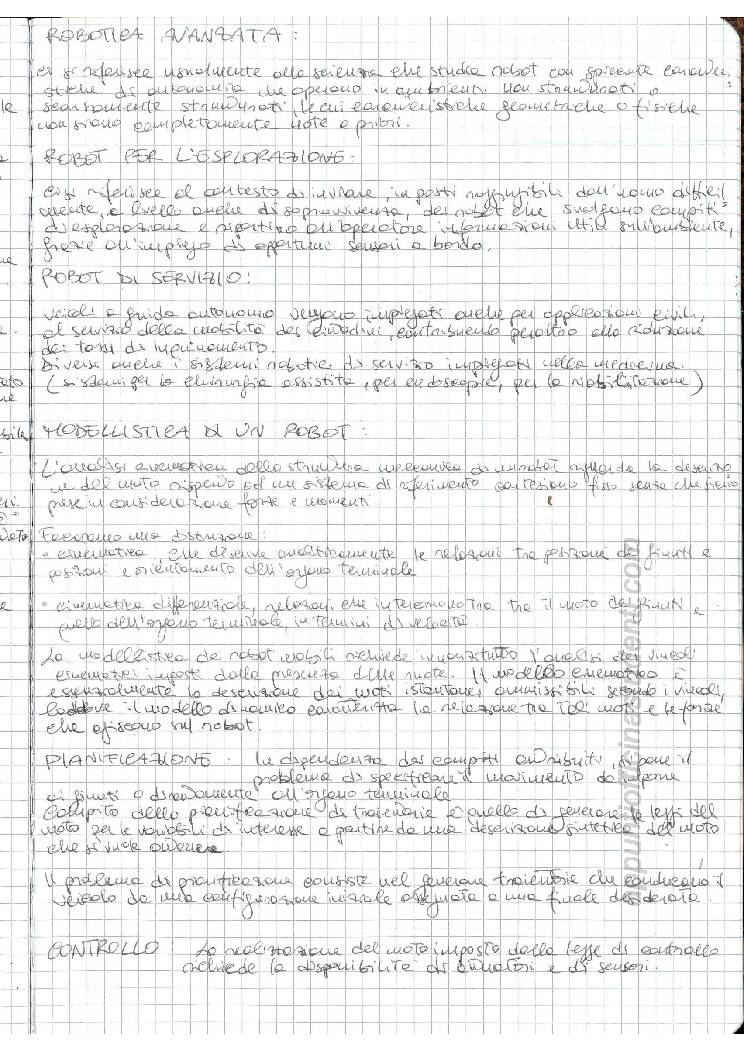 ROBOTICA AVANZATA:
ci si riferisce usualmente alla scienza che studia robot con spiccate caratteri
stiche di autonomia che operano in ambienti non strutturati o
scarsamente strutturati, le cui caratteristiche geometriche o fisiche
non siano completamente note a priori.
ROBOT PER L'ESPLORAZIONE:
ci si riferisce al contesto di inviare, in posti raggiungibili dall'uomo difficil
mente, a livello anche di sopravvivenza, dei robot che svolgano compiti
di esplorazione e riportino all'operatore informazioni utili sull'ambiente,
grazie all'impiego di opportuni sensori a bordo.
ROBOT DI SERVIZIO:
veicoli a guida autonoma vengono impiegati anche per applicazioni civili,
al servizio della mobilità dei cittadini, contribuendo peraltro alla riduzione
dei tassi di inquinamento.
Diversi anche i sistemi robotici di servizio impiegati nella medicina.
(sistemi per la chirurgia assistita, per endoscopie, per la riabilitazione)
MODELLISTICA DI UN ROBOT:
L'analisi cinematica della struttura meccanica di un robot riguarda la descrizio
ne del moto rispetto ad un sistema di riferimento cartesiano fisso senza che siano
prese in considerazione forze e momenti.
Facciamo una distinzione:
• cinematica, che descrive analiticamente le relazioni tra posizioni dei giunti e
posizioni e orientamento dell'organo terminale
• cinematica differenziale, relazioni che intercorrono tra tra il moto dei giunti e
quello dell'organo terminale, in termini di velocità.
La modellistica dei robot mobili richiede innanzitutto l'analisi dei vincoli
cinematici imposti dalla presenza delle ruote. Il modello cinematico è
essenzialmente la descrizione dei moti istantanei ammissibili secondo i vincoli,
laddove il modello dinamico caratterizza la relazione tra tali moti e le forze
che agiscono sul robot.
PIANIFICAZIONE. In dipendenza dei compiti attribuiti, si pone il
problema di specificare il movimento da imporre
ai giunti o direttamente all'organo terminale
Compito della pianificazione di traiettorie è quello di generare le leggi del
moto per le variabili di interesse a partire da una descrizione sintetica del moto
che si vuole ottenere
Il problema di pianificazione consiste nel generare traiettorie che conducano il
veicolo da una configurazione iniziale assegnata a una finale desiderata.
CONTROLLO La realizzazione del moto imposto dalla legge di controllo
richiede la disponibilità di attuatori e di sensori.